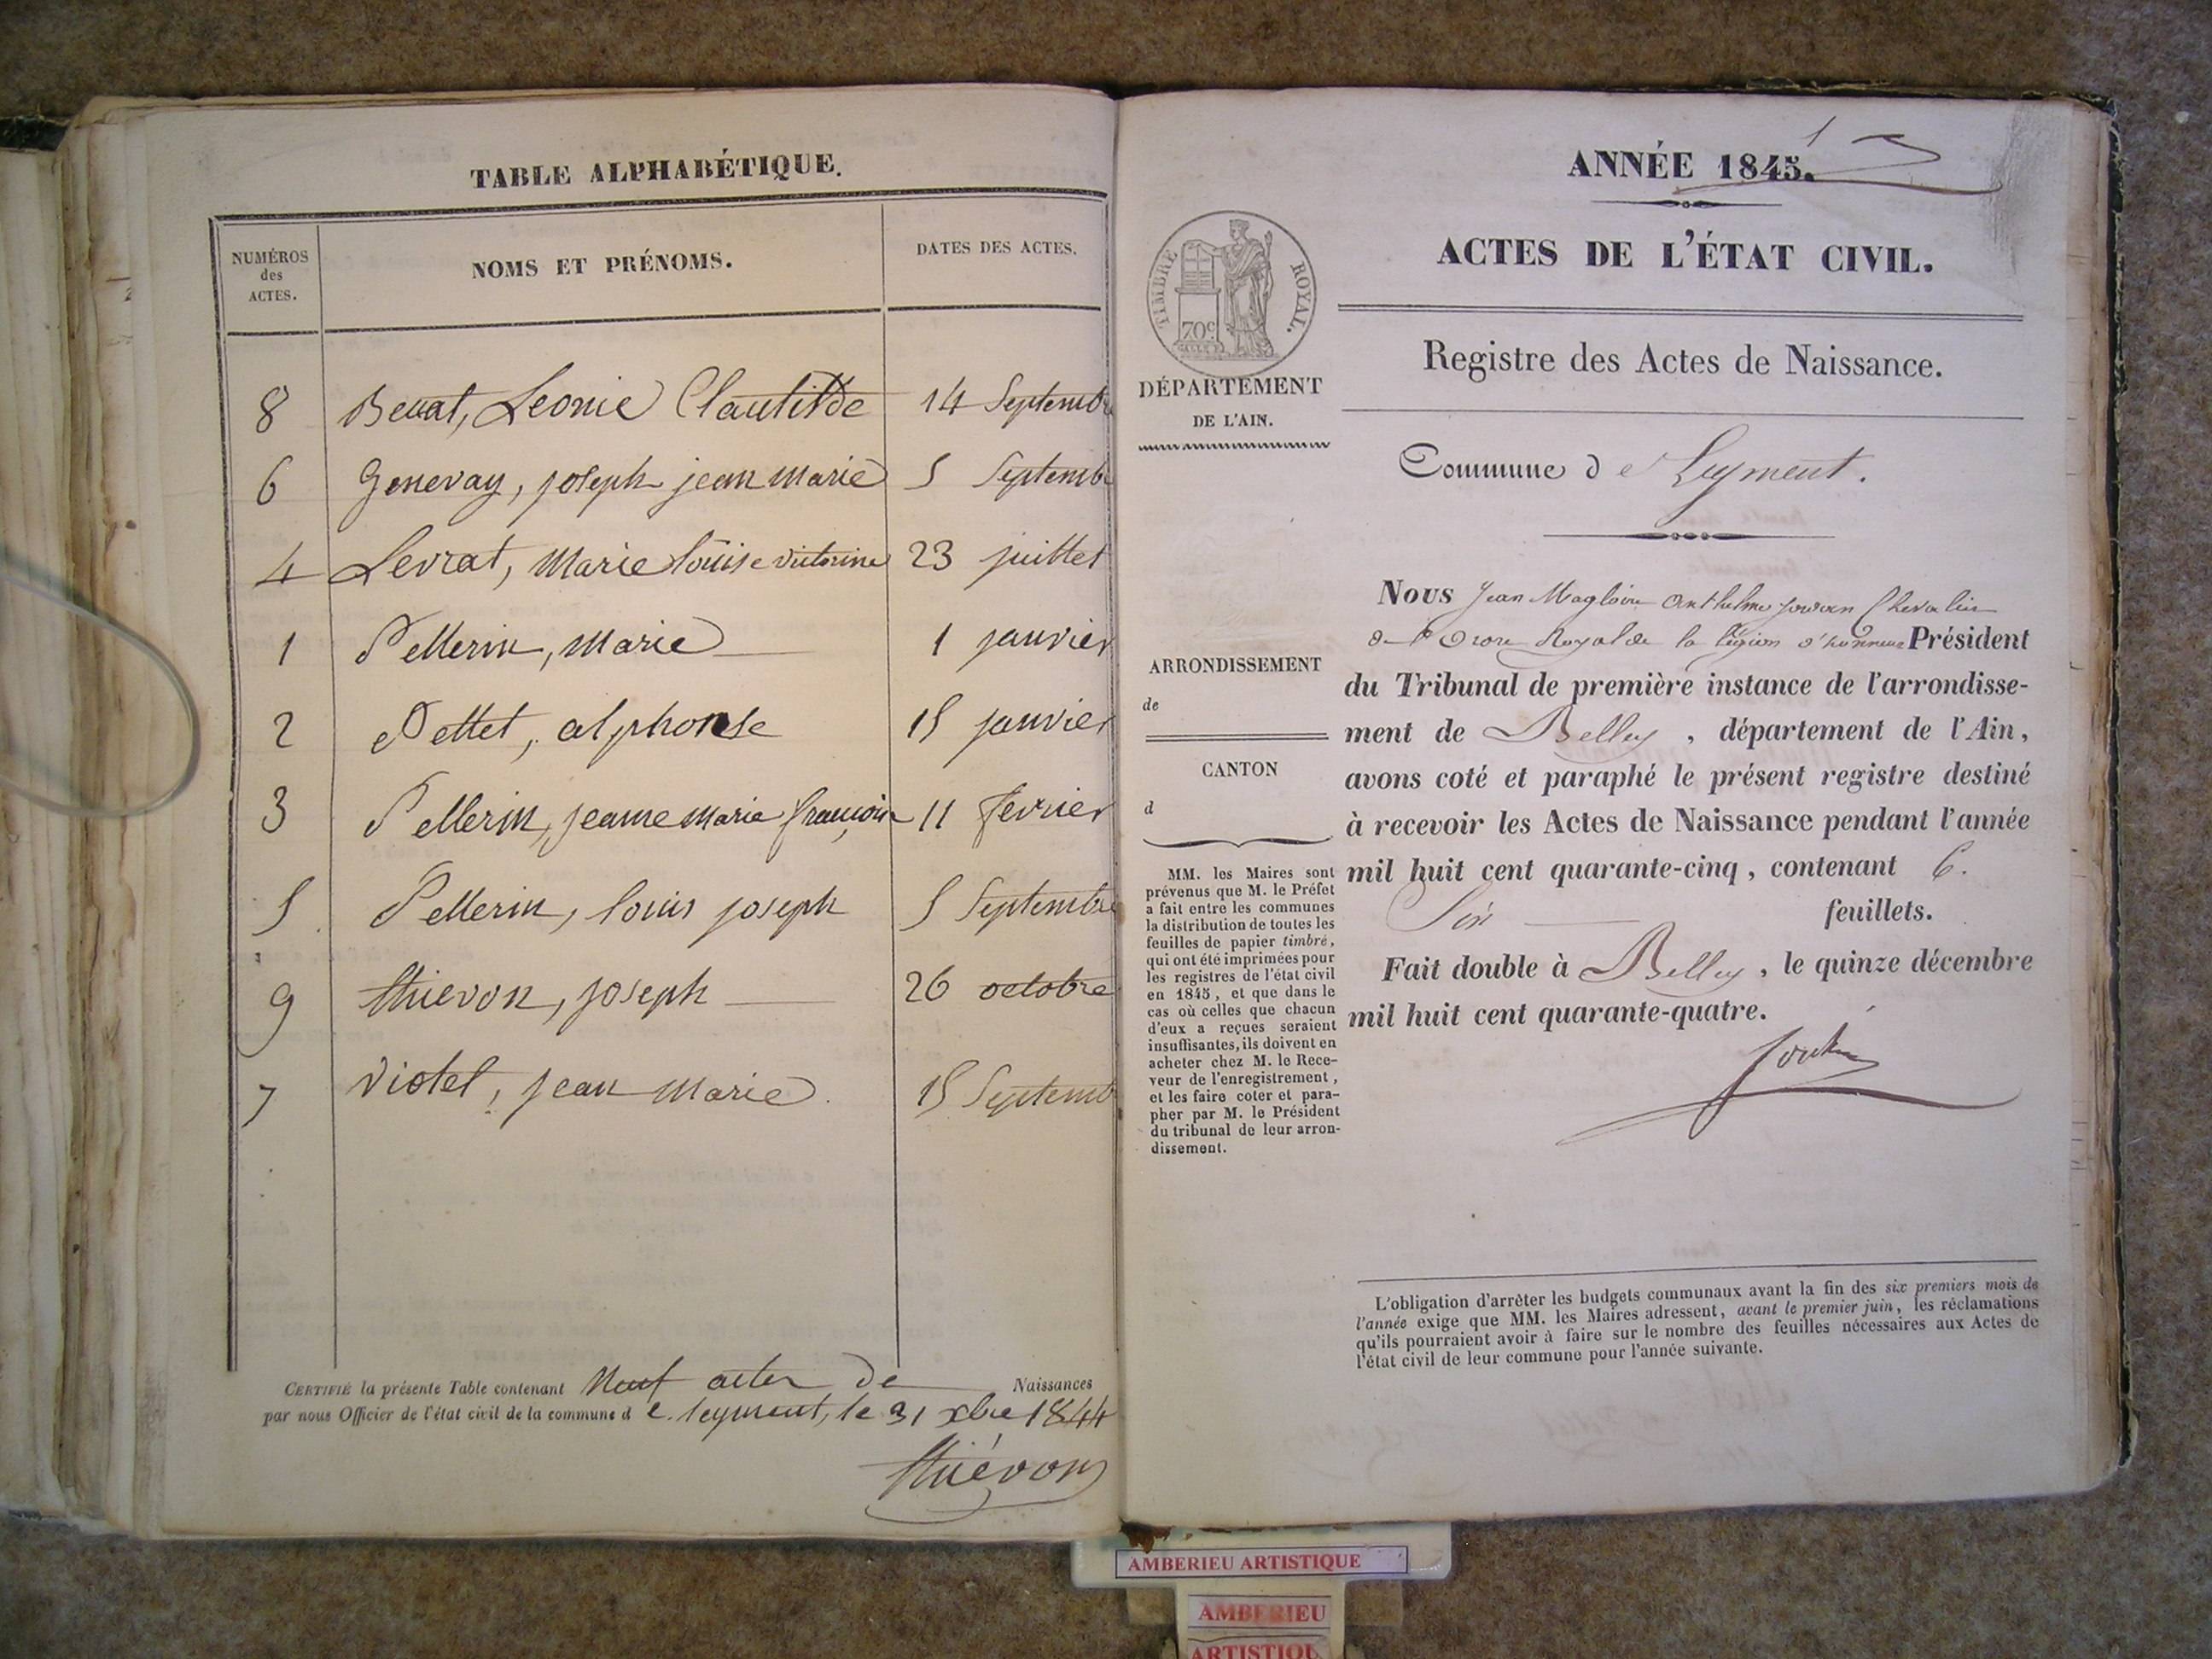 TABLE ALPHABÉTIQUE.
NUMÉROS
des
ACTES.
NOMS ET PRÉNOMS.
DATES DES ACTES.
8 Leonie Clautilde 14 Septembre
6 Genevay, joseph jean marie 5 Septembre
4 Levrat, Marie louise victorine 23 juillet
1 Pellerin, Marie 1 janvier
2 Pettet, alphonse 15 janvier
3 Pellerin, jeanne marie françoise 11 fevrier
5 Pellerin, louis joseph 5 Septembre
9 thievon, joseph 26 octobre
7 Viotet, jean marie 15 Septemb
CERTIFIÉ la présente Table contenant Neuf actes de Naissances
par nous Officier de l'état civil de la commune de leyment, le 31 xbre 1844
thiévon
1
ANNÉE 1845.
ACTES DE L'ÉTAT CIVIL.
TIMBRE ROYAL.
70c
Registre des Actes de Naissance.
DÉPARTEMENT
DE L'AIN.
Commune de Leyment.
Nous Jean Magloire Anthelme Jordan Chevalier
de l'Ordre Royal de la légion d'honneur Président
du Tribunal de première instance de l'arrondisse-
ment de Belley, département de l'Ain,
avons coté et paraphé le présent registre destiné
à recevoir les Actes de Naissance pendant l'année
mil huit cent quarante-cinq, contenant 6.
Six feuillets.
Fait double à Belley, le quinze décembre
mil huit cent quarante-quatre.
ARRONDISSEMENT
de
CANTON
d
MM. les Maires sont
prévenus que M. le Préfet
a fait entre les communes
la distribution de toutes les
feuilles de papier timbré,
qui ont été imprimées pour
les registres de l'état civil
en 1845, et que dans le
cas où celles que chacun
d'eux a reçues seraient
insuffisantes, ils doivent en
acheter chez M. le Rece-
veur de l'enregistrement,
et les faire coter et para-
pher par M. le Président
du tribunal de leur arron-
dissement.
L'obligation d'arrêter les budgets communaux avant la fin des six premiers mois de
l'année exige que MM. les Maires adressent, avant le premier juin, les réclamations
qu'ils pourraient avoir à faire sur le nombre des feuilles nécessaires aux Actes de
l'état civil de leur commune pour l'année suivante.
AMBERIEU ARTISTIQUE
AMBERIEU
ARTISTIQU